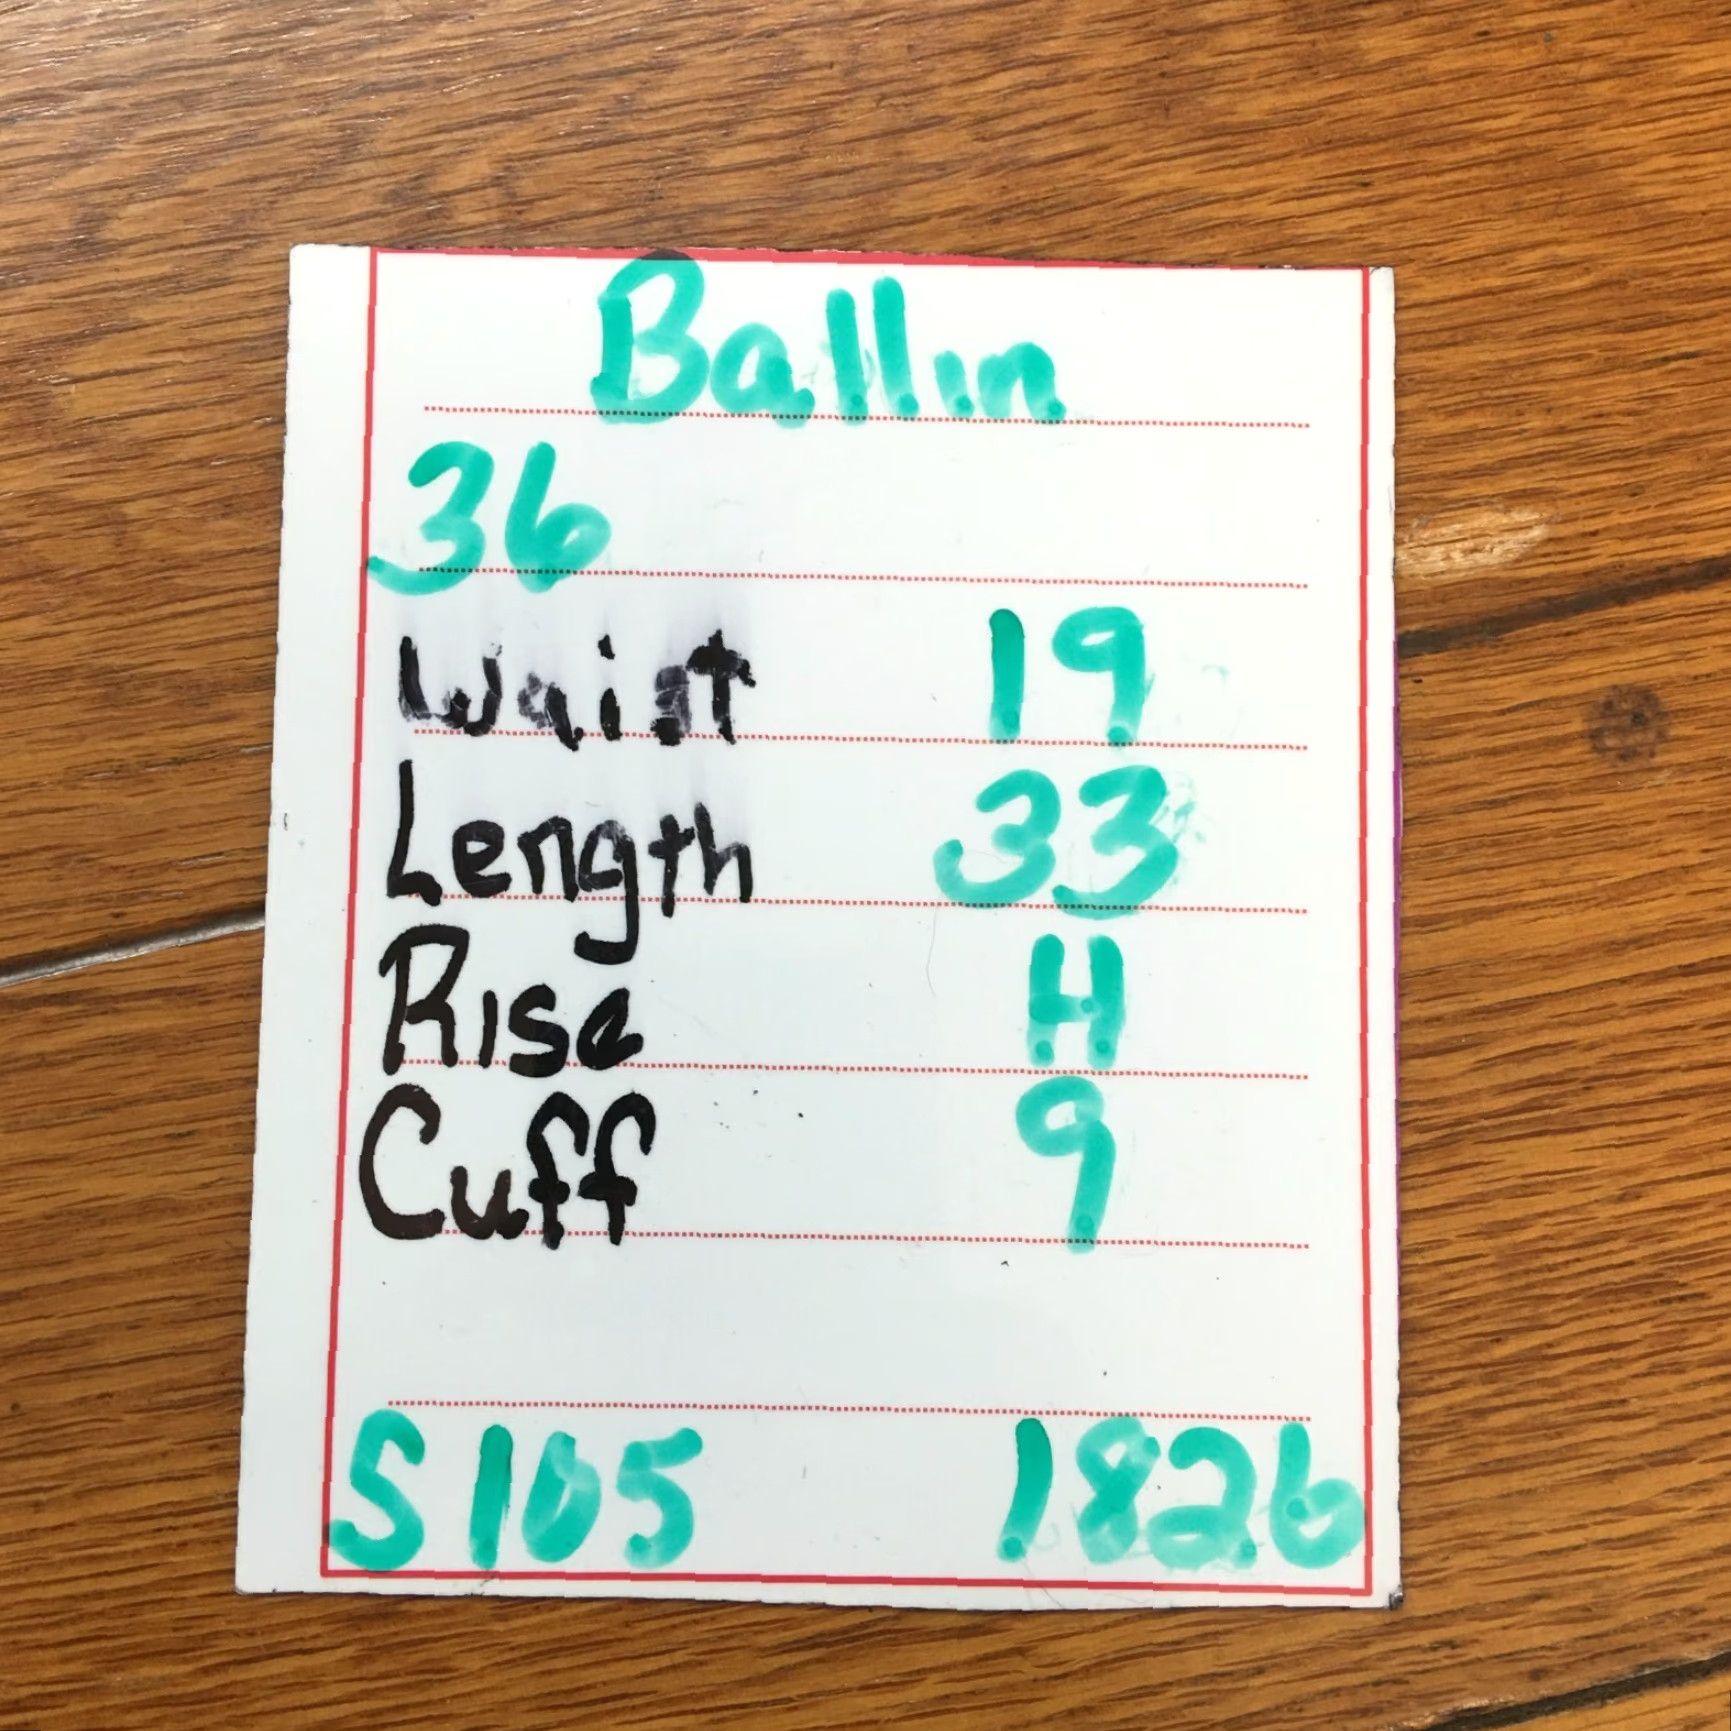 Ballin
36
Waist 19
Length 33
Rise H
Cuff 9
S105 1826